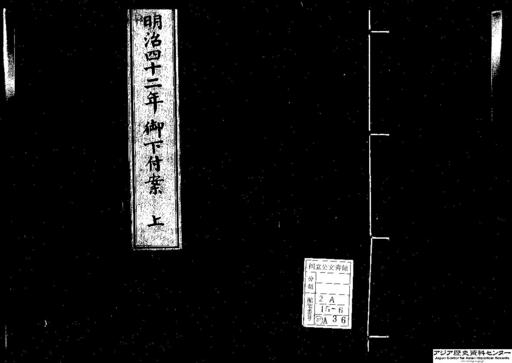 明治四十二年 御下付案 上
国立公文書館
分類
配架番号
2 A
15-6
A 3 6
アジア歴史資料センター
Japan Center for Asian Historical Records